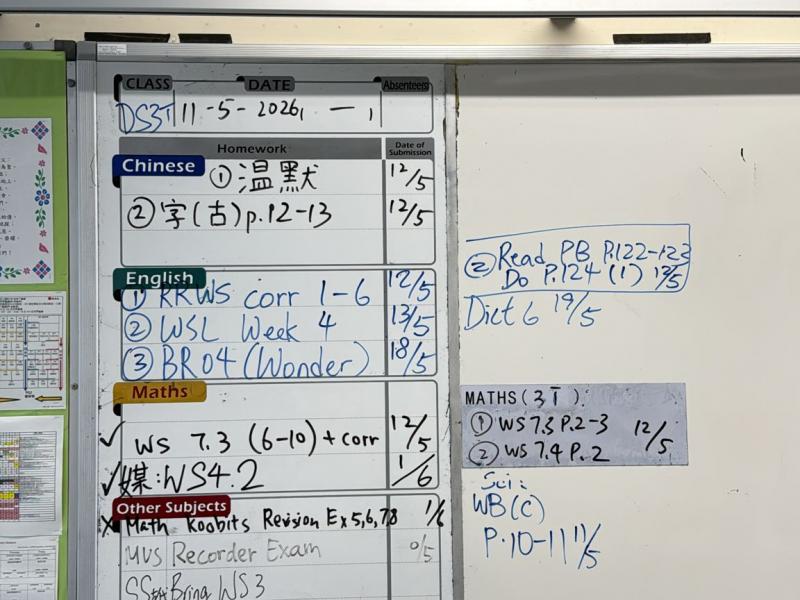 CLASS DATE Absenteers
DS3T 11-5-2026, 一,
Homework Date of Submission
Chinese
① 温默 12/5
② 字(古)p.12-13 12/5
English
① RRWS corr 1-6 12/5
② WSL Week 4 13/5
③ BR04 (Wonder) 18/5
Maths
✓ WS 7.3 (6-10)+corr 12/5
✓ 媒:WS4.2 1/6
Other Subjects
x Math Koobits Revision Ex 5,6,7,8 1/6
MUS Recorder Exam
Bring WS3
② Read PB P.122-123
Do P.124 (1) 12/5
Dict 6 19/5
MATHS(3T):
① WS 7.3 P.2-3 12/5
② WS 7.4 P.2
Sci:
WB(C)
P.10-11 11/5